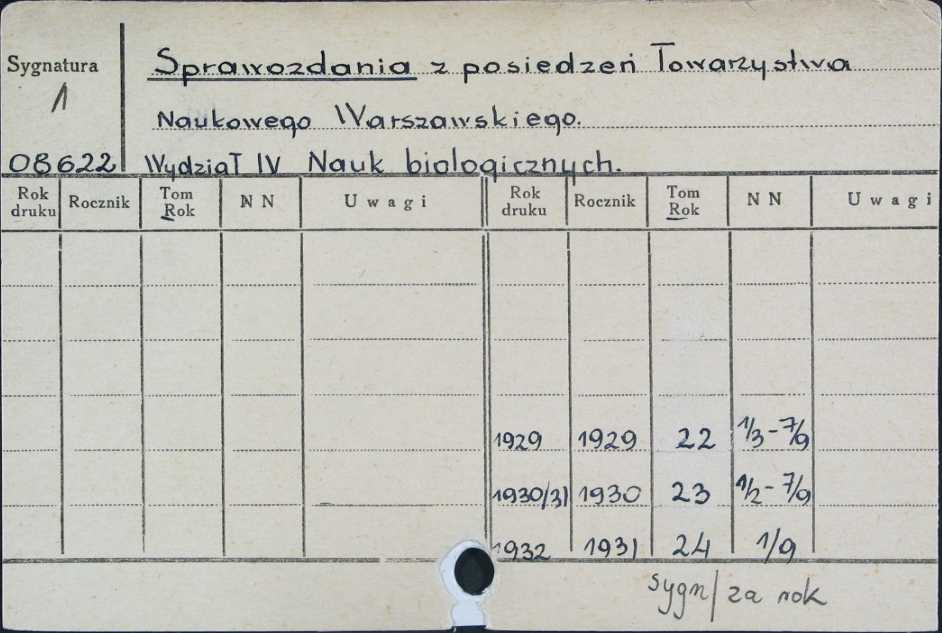 Sygnatura
1
08622
Sprawozdania z posiedzeń Towarzystwa
Naukowego Warszawskiego.
Wydział IV Nauk biologicznych.
Rok druku Rocznik Tom Rok NN Uwagi Rok druku Rocznik Tom Rok NN Uwagi
1929 1929 22 1/3-7/9
1930/31 1930 23 1/2-7/9
1932 1931 24 1/9
sygn/ za rok